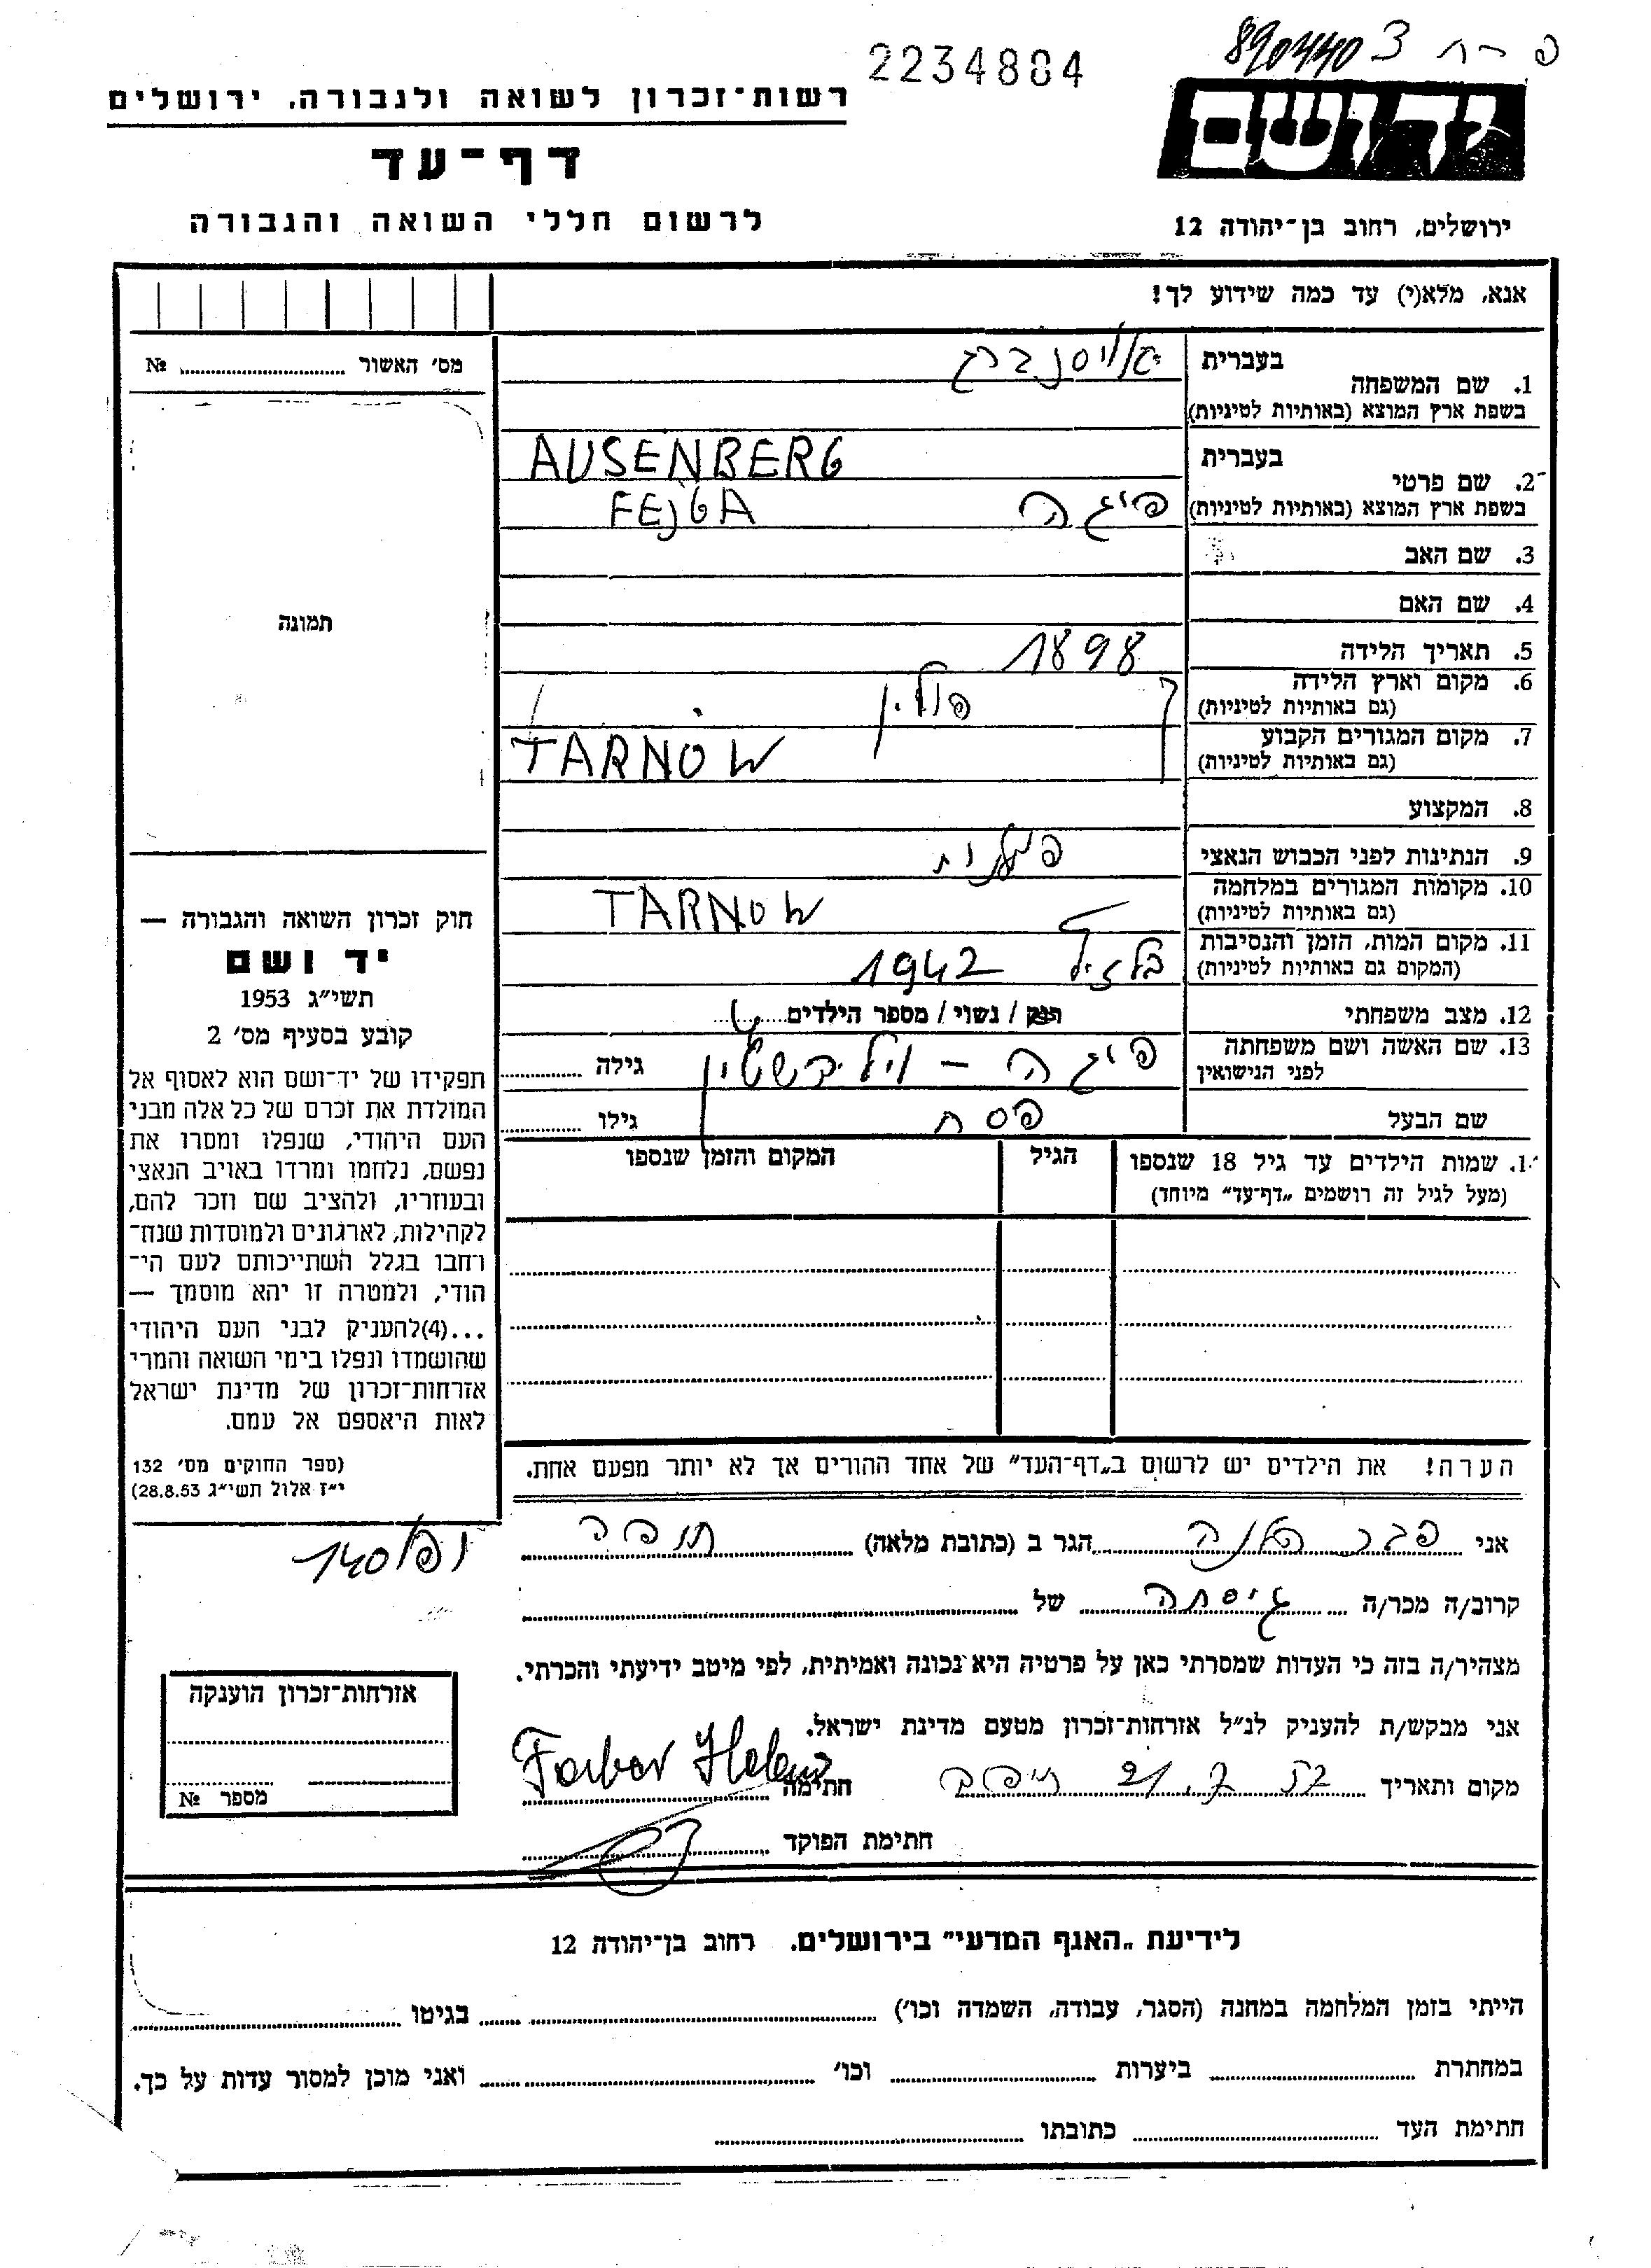 2234884
8904403 פ-ח
רשות-זכרון לשואה ולגבורה, ירושלים
יד ושם
דף-עד
לרשום חללי השואה והגבורה
ירושלים, רחוב בן-יהודה 12
אנא, מלא(י) עד כמה שידוע לך!
מס' האשור № ..........
תמונה
1. שם המשפחה
בעברית אויסנברג
בשפת ארץ המוצא (באותיות לטיניות)
AUSENBERG
2. שם פרטי
בעברית
בשפת ארץ המוצא (באותיות לטיניות) פיגה FEJGA
3. שם האב
4. שם האם
5. תאריך הלידה 1898
6. מקום וארץ הלידה
(גם באותיות לטיניות) פולין
7. מקום המגורים הקבוע
(גם באותיות לטיניות) TARNÓW
8. המקצוע
9. הנתינות לפני הכבוש הנאצי פולנית
10. מקומות המגורים במלחמה
(גם באותיות לטיניות) TARNOW
11. מקום המות, הזמן והנסיבות
(המקום גם באותיות לטיניות) 1942
12. מצב משפחתי רוק / נשוי / מספר הילדים ..........
13. שם האשה ושם משפחתה
לפני הנישואין פיגה – גילה ..........
שם הבעל פסח גילו ..........
1. שמות הילדים עד גיל 18 שנספו
(מעל לגיל זה רושמים „דף-עד" מיוחד)
הגיל
המקום והזמן שנספו
הערה! את הילדים יש לרשום ב„דף-העד" של אחד ההורים אך לא יותר מפעם אחת.
חוק זכרון השואה והגבורה —
יד ושם
תשי"ג 1953
קובע בסעיף מס' 2
תפקידו של יד-ושם הוא לאסוף אל
המולדת את זכרם של כל אלה מבני
העם היהודי, שנפלו ומסרו את
נפשם, נלחמו ומרדו באויב הנאצי
ובעוזריו, ולהציב שם וזכר להם,
לקהילות, לארגונים ולמוסדות שנח-
רבו בגלל השתייכותם לעם הי-
הודי, ולמטרה זו יהא מוסמך —
...(4)להעניק לבני העם היהודי
שהושמדו ונפלו בימי השואה והמרי
אזרחות-זכרון של מדינת ישראל
לאות היאספם אל עמם.
(ספר החוקים מס' 132
י"ז אלול תשי"ג 28.8.53)
אני פבר הלנה הגר ב (כתובת מלאה) חיפה
קרוב/ה מכר/ה גיסתה של ..........
מצהיר/ה בזה כי העדות שמסרתי כאן על פרטיה היא נכונה ואמיתית, לפי מיטב ידיעתי והכרתי.
אני מבקש/ת להעניק לנ"ל אזרחות-זכרון מטעם מדינת ישראל.
מקום ותאריך חיפה חתימה Farber Helena
חתימת הפוקד ..........
אזרחות-זכרון הוענקה
מספר №
לידיעת „האגף המדעי" בירושלים, רחוב בן-יהודה 12
הייתי בזמן המלחמה במחנה (הסגר, עבודה, השמדה וכו') .......... בגיטו ..........
במחתרת .......... ביערות .......... וכו' .......... ואני מוכן למסור עדות על כך.
חתימת העד .......... כתובתו ..........